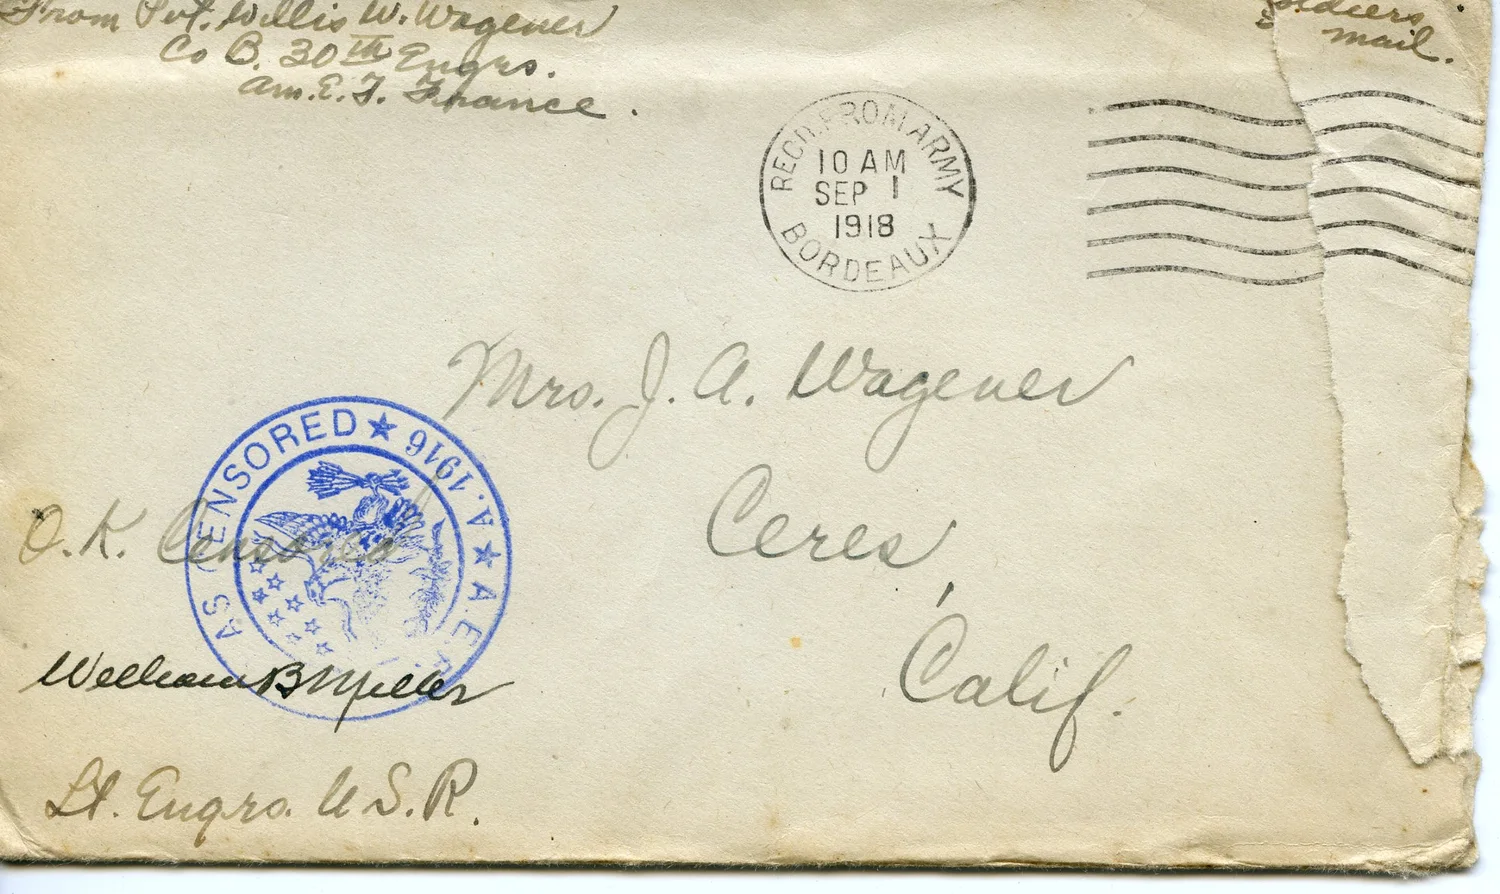 From Pvt. Willis W. Wagener
Co B. 30th Engrs.
Am. E. F. France.
Soldiers
mail.
RECD. FROM ARMY
10 AM
SEP 1
1918
BORDEAUX
Mrs. J. A. Wagener
Ceres,
Calif.
AS CENSORED ★ A.1916 ★ A.E.
O.K. Censored
William B Miller
Lt. Engrs. U S. R.